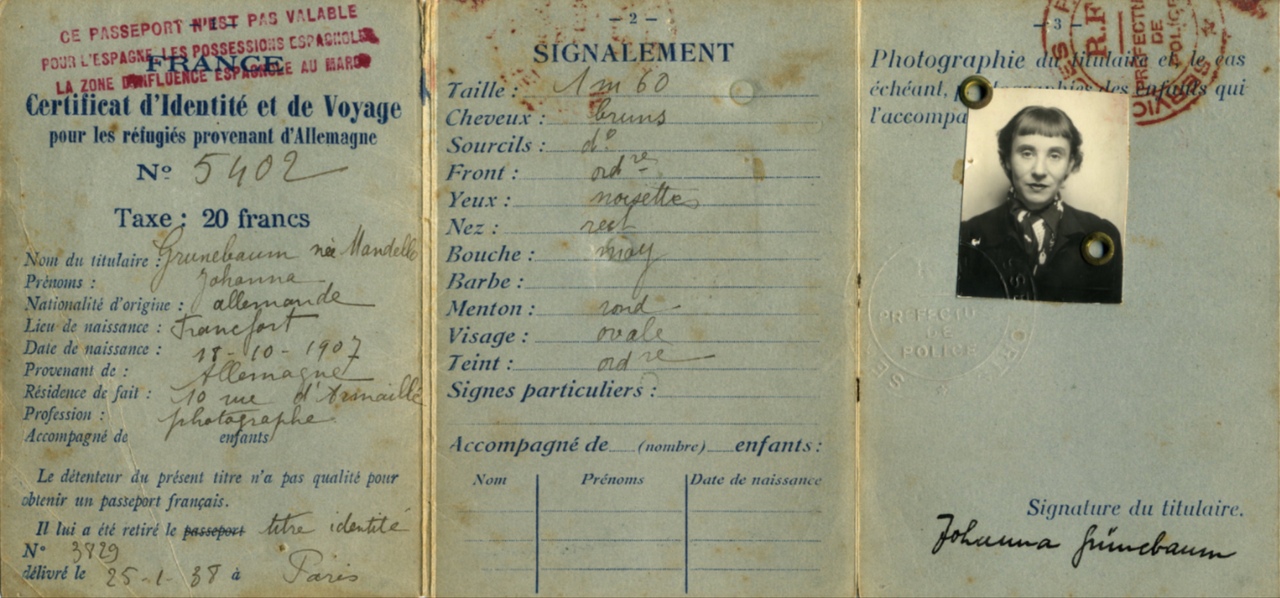 CE PASSEPORT N'EST PAS VALABLE
POUR L'ESPAGNE LES POSSESSIONS ESPAGNOLES
LA ZONE D'INFLUENCE ESPAGNOLE AU MAROC
FRANCE
Certificat d'Identité et de Voyage
pour les réfugiés provenant d'Allemagne
Nº 5402
Taxe : 20 francs
Nom du titulaire : Grunebaum née Mandello
Prénoms : Johanna
Nationalité d'origine : allemande
Lieu de naissance : Francfort
Date de naissance : 18-10-1907
Provenant de : Allemagne
Résidence de fait : 10 rue d'Armaillé
Profession : photographe
Accompagné de enfants
Le détenteur du présent titre n'a pas qualité pour
obtenir un passeport français.
Il lui a été retiré le passeport titre identité
Nº 3829
délivré le 25-1-38 à Paris
— 2 —
SIGNALEMENT
Taille : 1 m 60
Cheveux : bruns
Sourcils : dº
Front : ordre
Yeux : noisettes
Nez : rect
Bouche : moy
Barbe :
Menton : rond
Visage : ovale
Teint : ordre
Signes particuliers :
Accompagné de (nombre) enfants :
Nom Prénoms Date de naissance
— 3 —
R.F
PREFECTURE
DE
POLICE
Photographie du titulaire et le cas
échéant, photographies des enfants qui
l'accompa
PREFECTU
DE
POLICE
Signature du titulaire.
Johanna Grünebaum